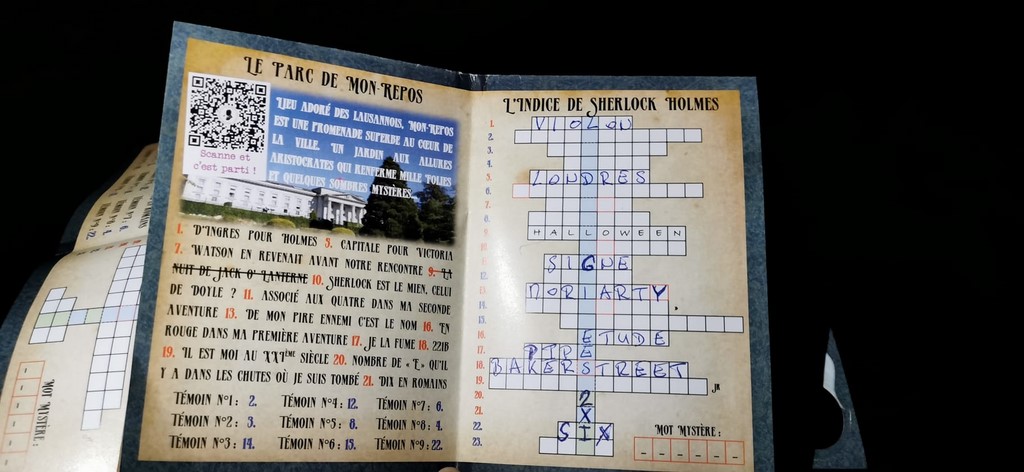 Le Parc de Mon-Repos
Scanne et
c'est parti !
Lieu adoré des Lausannois, Mon-Repos
est une promenade superbe au cœur de
la ville. Un jardin aux allures
aristocrates qui renferme mille folies
et quelques sombres mystères.
1. D'Ingres pour Holmes 5. Capitale pour Victoria
7. Watson en revenait avant notre rencontre 9. La
nuit de Jack O' Lanterne 10. Sherlock est le mien, celui
de Doyle ? 11. Associé aux quatre dans ma seconde
aventure 13. De mon pire ennemi c'est le nom 16. En
rouge dans ma première aventure 17. Je la fume 18. 221B
19. Il est moi au XXIème siècle 20. Nombre de « L » qu'il
y a dans les chutes où je suis tombé 21. Dix en romains
Témoin N°1 : 2. Témoin N°4 : 12. Témoin N°7 : 6.
Témoin N°2 : 3. Témoin N°5 : 8. Témoin N°8 : 4.
Témoin N°3 : 14. Témoin N°6 : 15. Témoin N°9 : 22.
L'Indice de Sherlock Holmes
1. VIOLON
2.
3.
4.
5. LONDRES
6.
7.
8.
9. HALLOWEEN
10.
11. SIGNE
12.
13. MORIARTY
14.
15.
16. ETUDE
17. PIPE
18. BAKERSTREET
19. JR
20. 2
21. X
22. SIX
23.
Mot Mystère :
Mot Mystère :